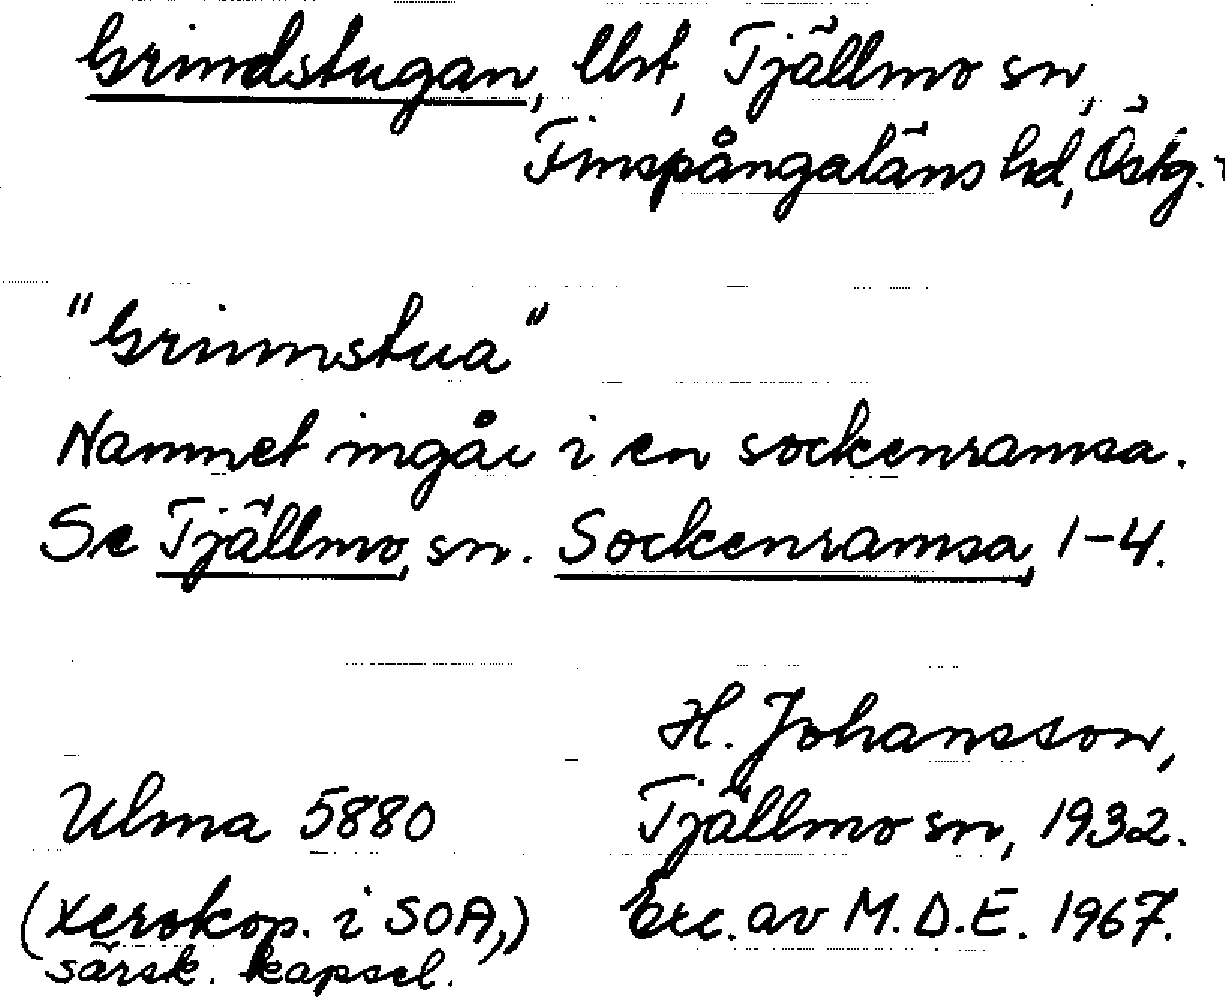 Grindstugan, lht, Tjällmo sn,
Finspångaläns hd, Östg.
"Grinnstua"
Namnet ingår i en sockenramsa.
Se Tjällmo, sn. Sockenramsa, 1-4.
H. Johansson,
Ulma 5880 Tjällmo sn, 1932.
(xerokop. i SOA,) Exc. av M.D.E. 1967.
särsk. kapsel.